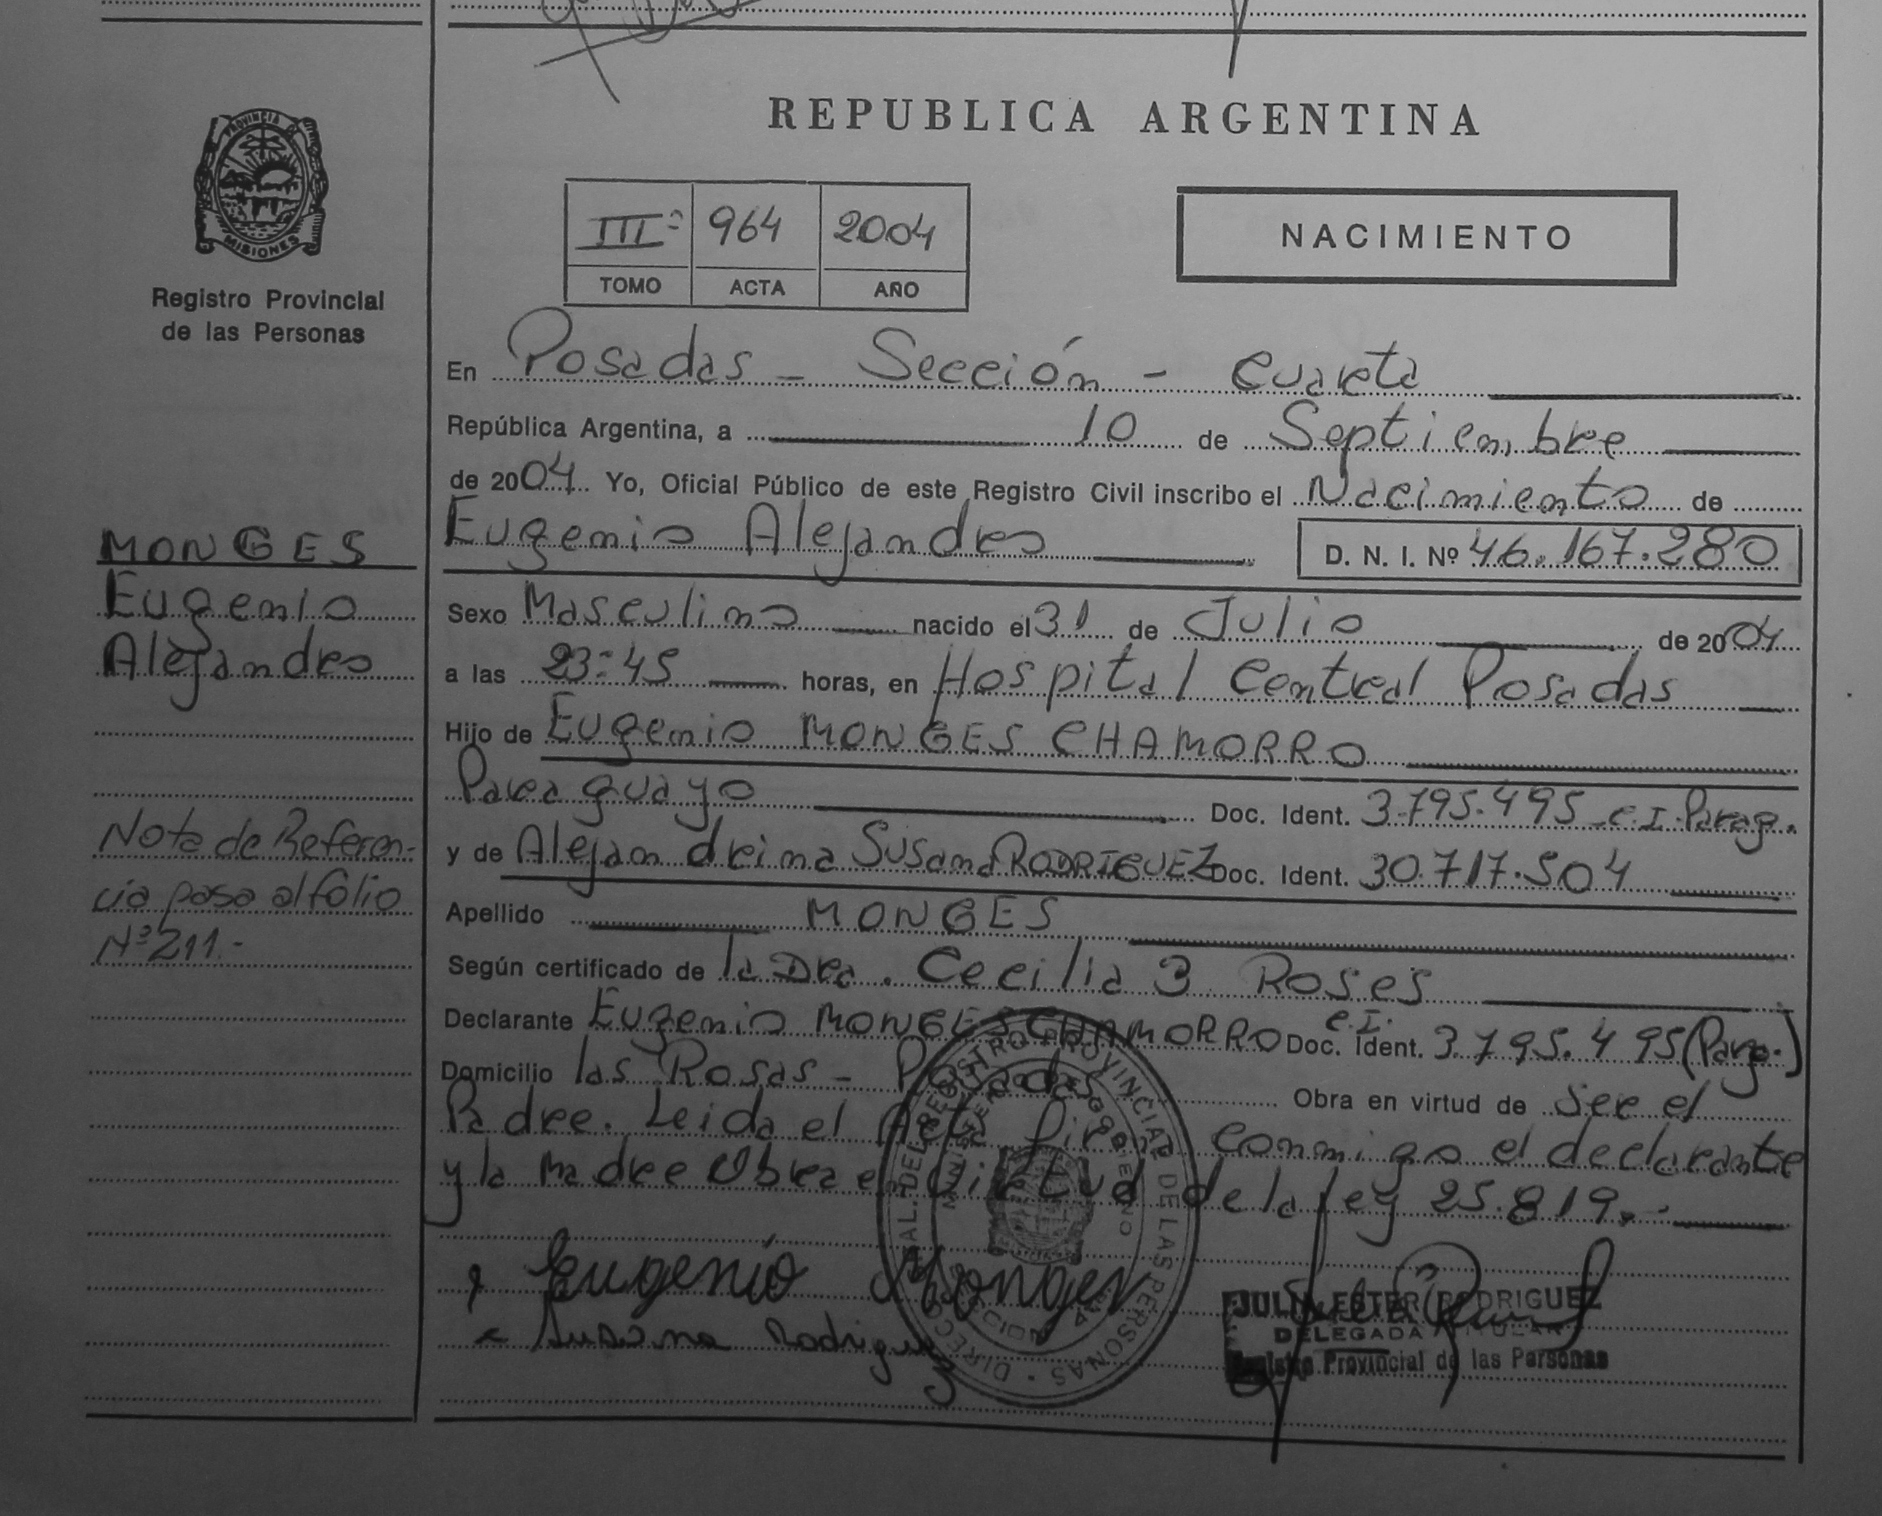 PROVINCIA DE
MISIONES
Registro Provincial
de las Personas
MONGES
Eugenio
Alejandro
Nota de Referen-
cia pasa al folio
Nº 211.-
REPUBLICA ARGENTINA
IIIº 964 2004
TOMO ACTA AÑO
NACIMIENTO
En Posadas - Sección - Cuarta
República Argentina, a 10 de Septiembre
de 2004. Yo, Oficial Público de este Registro Civil inscribo el Nacimiento de
Eugenio Alejandro D. N. I. Nº 46.167.280
Sexo Masculino nacido el 31 de Julio de 2004
a las 23:45 horas, en Hospital Central Posadas
Hijo de Eugenio MONGES CHAMORRO
Paraguayo Doc. Ident. 3.795.495 C.I. Parag.
y de Alejandrina Susana RODRIGUEZ Doc. Ident. 30.717.504
Apellido MONGES
Según certificado de la Dra. Cecilia B Roses
Declarante Eugenio MONGES CHAMORRO Doc. Ident. C.I. 3.795.495 (Parag.)
Domicilio las Rosas - Posadas Obra en virtud de Ser el
Padre. Leida el Acta firma conmigo el declarante
y la madre Obra en virtud de la ley 25.819.-
Eugenio Monges
Susana Rodriguez
DIRECCION GRAL. DEL REGISTRO PROVINCIAL DE LAS PERSONAS
MINISTERIO DE GOBIERNO
JULIA ESTER RODRIGUEZ
DELEGADA TITULAR
Registro Provincial de las Personas